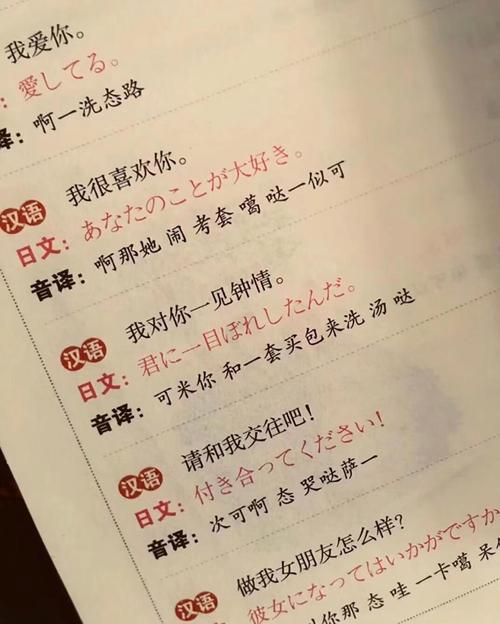 我爱你。
：愛してる。
译：啊一洗态路
汉语 我很喜欢你。
日文：あなたのことが大好き。
音译：啊那她 闹 考套 噶 哒一似可
汉语 我对你一见钟情。
日文：君に一目ぼれしたんだ。
音译：可米你 和一套买包来洗 汤 哒
汉语 请和我交往吧！
日文：付き合ってください！
音译：次可啊 态 哭哒萨一
汉语 做我女朋友怎么样？
彼女になってはいかがですか
你那 态 哇 一卡噶 呆